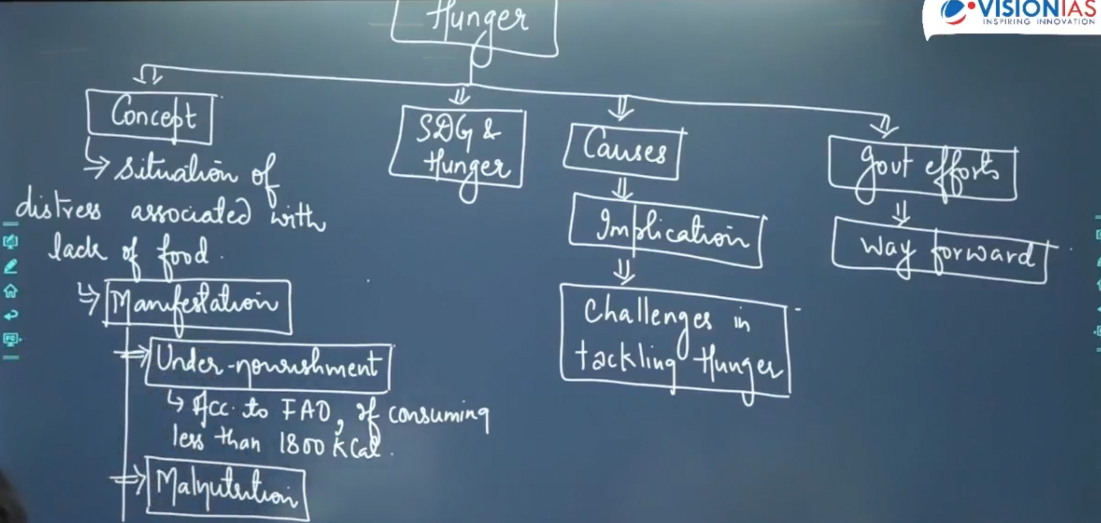 Hunger
VISIONIAS
INSPIRING INNOVATION
Concept
↳ situation of
distress associated with
lack of food.
↳ Manifestation
⇒ Under-nourishment
↳ Acc. to FAO, if consuming
less than 1800 kCal.
⇒ Malnutrition
SDG &
Hunger
Causes
Implication
Challenges in
tackling Hunger
Govt efforts
Way forward